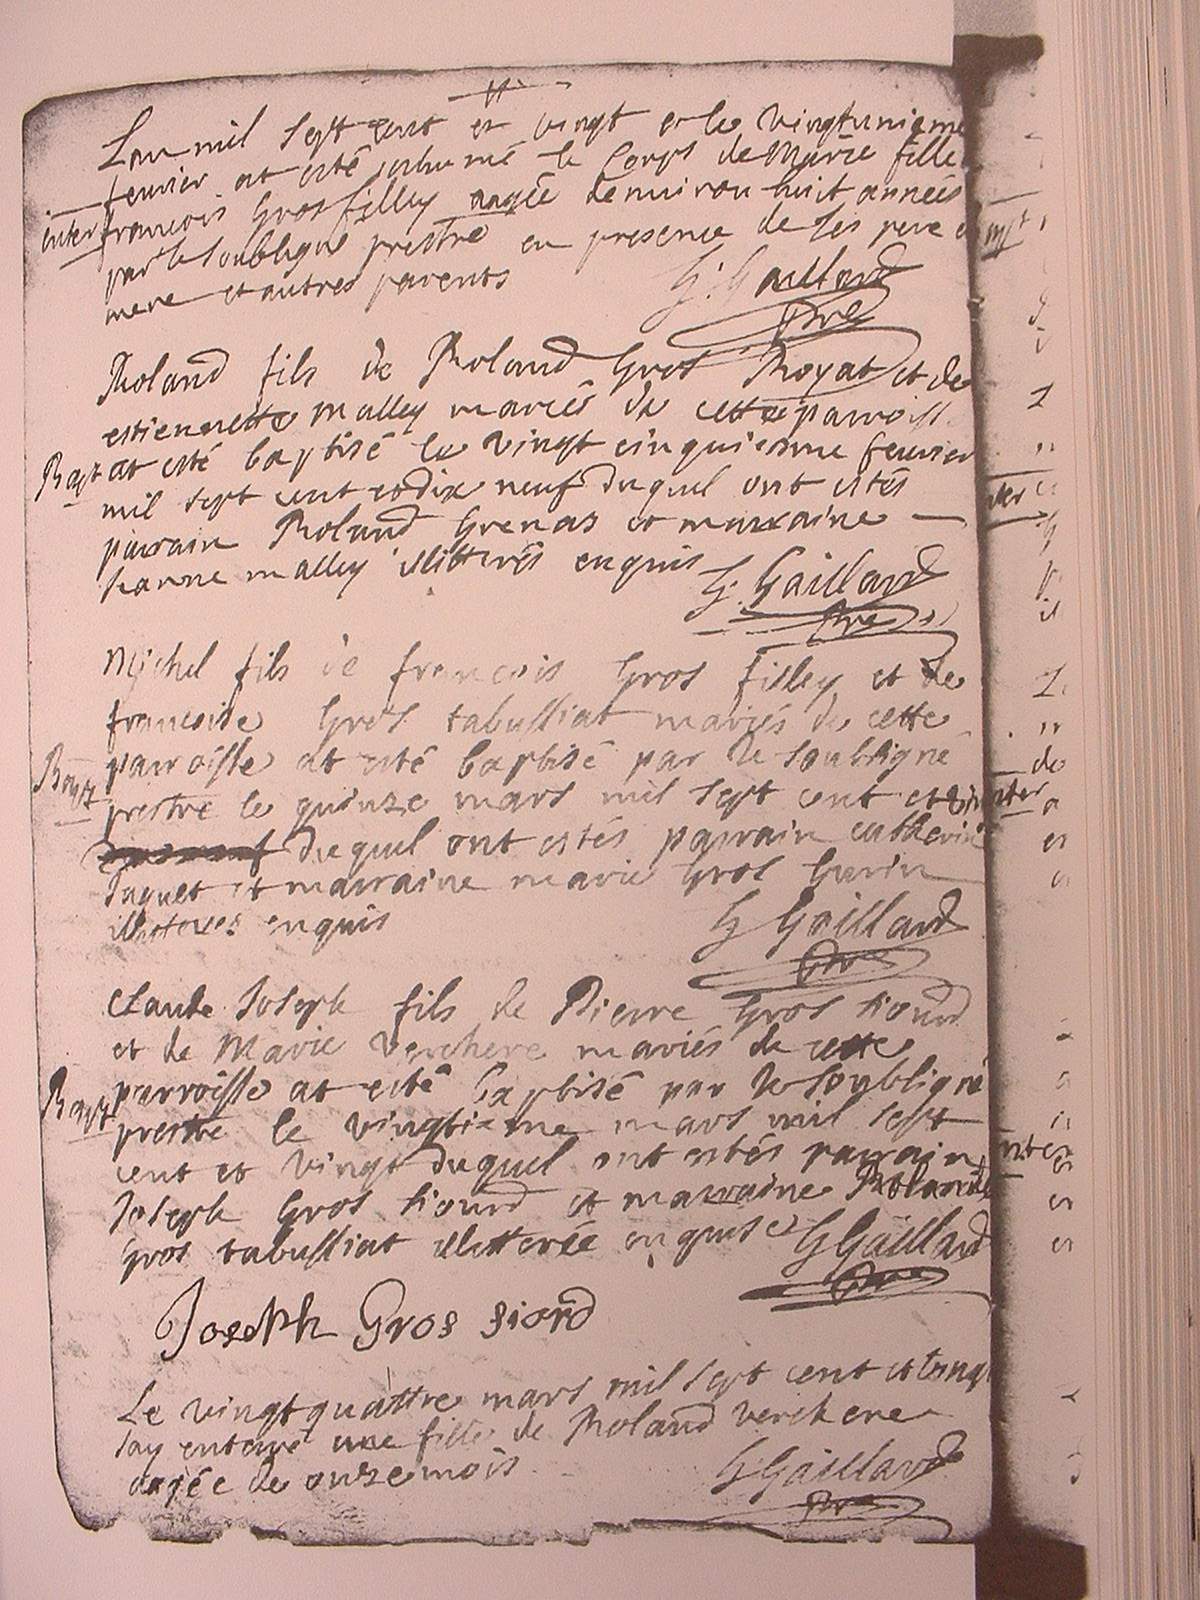 L'an mil sept cent et vingt et le vingtunieme
feuvrier at esté inhumé le Corps de Marie fille
inter francois Gros filley aagée denviron huit années
par le soubsigné prestre en presence de ses pere et
mere et autres parents G: Gaillard
pre
Roland fils de Roland Gros Royat et de
estiennette malley mariés de cette parroiss
Bapt at esté baptisé le vingt cinquiesme feuvrier
mil sept cent et dix neuf duquel ont estés
parrain Roland Grenas et marraine
Jeanne malley illitterés enquis G: Gaillard
pre
Michel fils de francois Gros filley et de
francoise Gros tabussiat mariés de cette
parroisse at esté baptisé par le soubsigné
Bapt prestre le quinze mars mil sept cent et vingt
duquel ont estés parrain catherin
Juguet et marraine marie Gros Gurin
illiterés enquis G Gaillard
pre
Claude Joseph fils de Pierre Gros Siourd
et de Marie Verchere mariés de cette
Bapt parroisse at esté baptisé par le soubsigné
prestre le vingtiesme mars mil sept
cent et vingt duquel ont estés parrain
Joseph Gros Siourd et marraine Rolande
Gros tabussiat illitterée enquise G Gaillard
pre
Joseph Gros Siord
Le vingtquattre mars mil sept cent et vingt
Jay enterré une fille de Roland Verchere
aagée de onze mois G Gaillard
pre